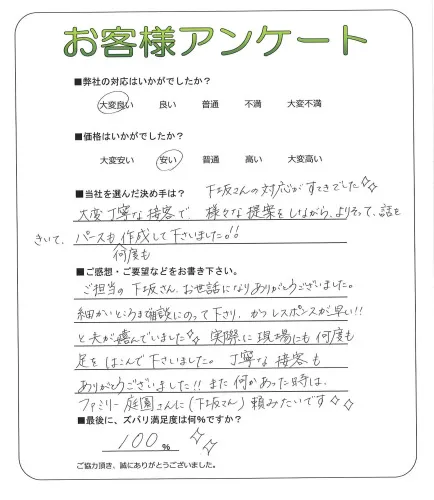 お客様アンケート
■弊社の対応はいかがでしたか？
大変良い 良い 普通 不満 大変不満
■価格はいかがでしたか？
大変安い 安い 普通 高い 大変高い
■当社を選んだ決め手は？ 下坂さんの対応がすてきでした
大変丁寧な接客で 様々な提案をしながら、よりそって、話を
きいて、パースも作成して下さいました!!
何度も
■ご感想・ご要望などをお書き下さい。
ご担当の下坂さん、お世話になりありがとうございました。
細かいところまで相談にのって下さり、かつレスポンスが早い!!
と夫が喜んでいました 実際に現場にも何度も
足をはこんで下さいました。 丁寧な接客も
ありがとうございました!! また何かあった時は、
ファミリー庭園さんに(下坂さん)頼みたいです
■最後に、ズバリ満足度は何%ですか？
100%
ご協力頂き、誠にありがとうございました。